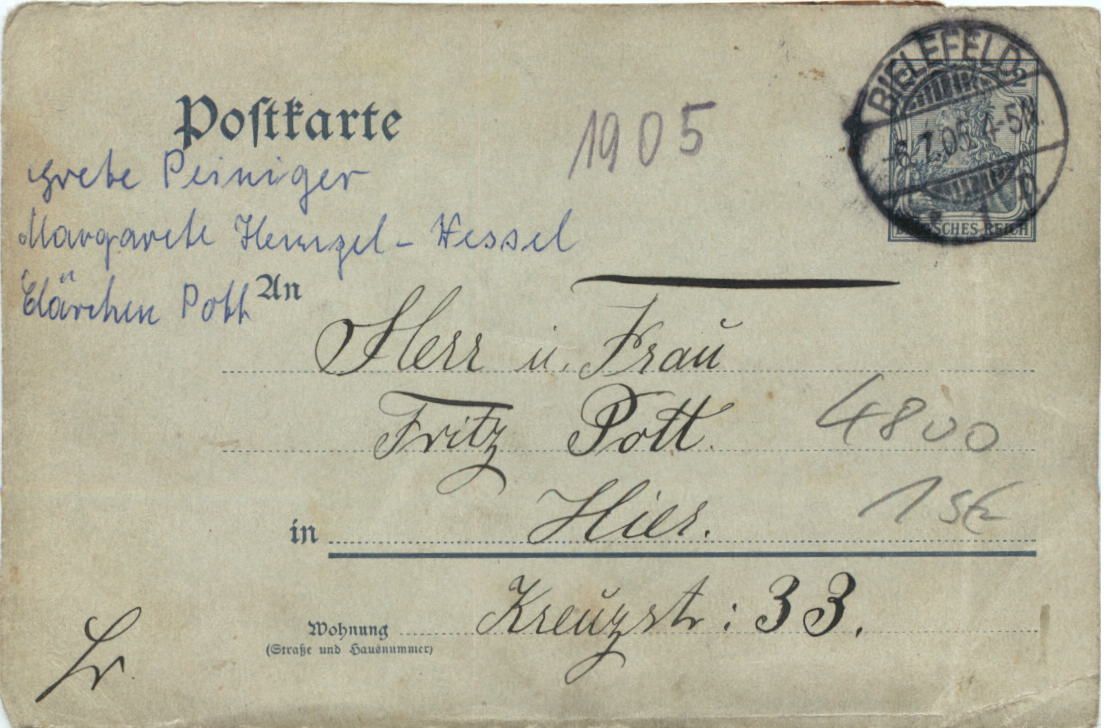 BIELEFELD
2
-6.7.05.4-5N.
DEUTSCHES REICH
Postkarte
1905
Grete Peiniger
Margarete
Clärchen Pott
An
Herr u. Frau
Fritz Pott.
4800
Hier.
1
in
Kreuzstr: 33.
Wohnung
(Straße und Hausnummer)